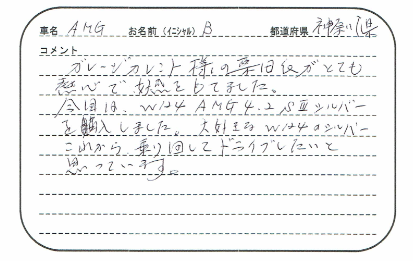 車名 AMG お名前(イニシャル) B 都道府県 神奈川県
コメント
ガレージカレント様の がとても
で好感をもてました。
今回は、W124 AMG 4.2 シルバー
を購入しました。大好きなW124のシルバー
これから、乗り回してドライブしたいと
思っています。